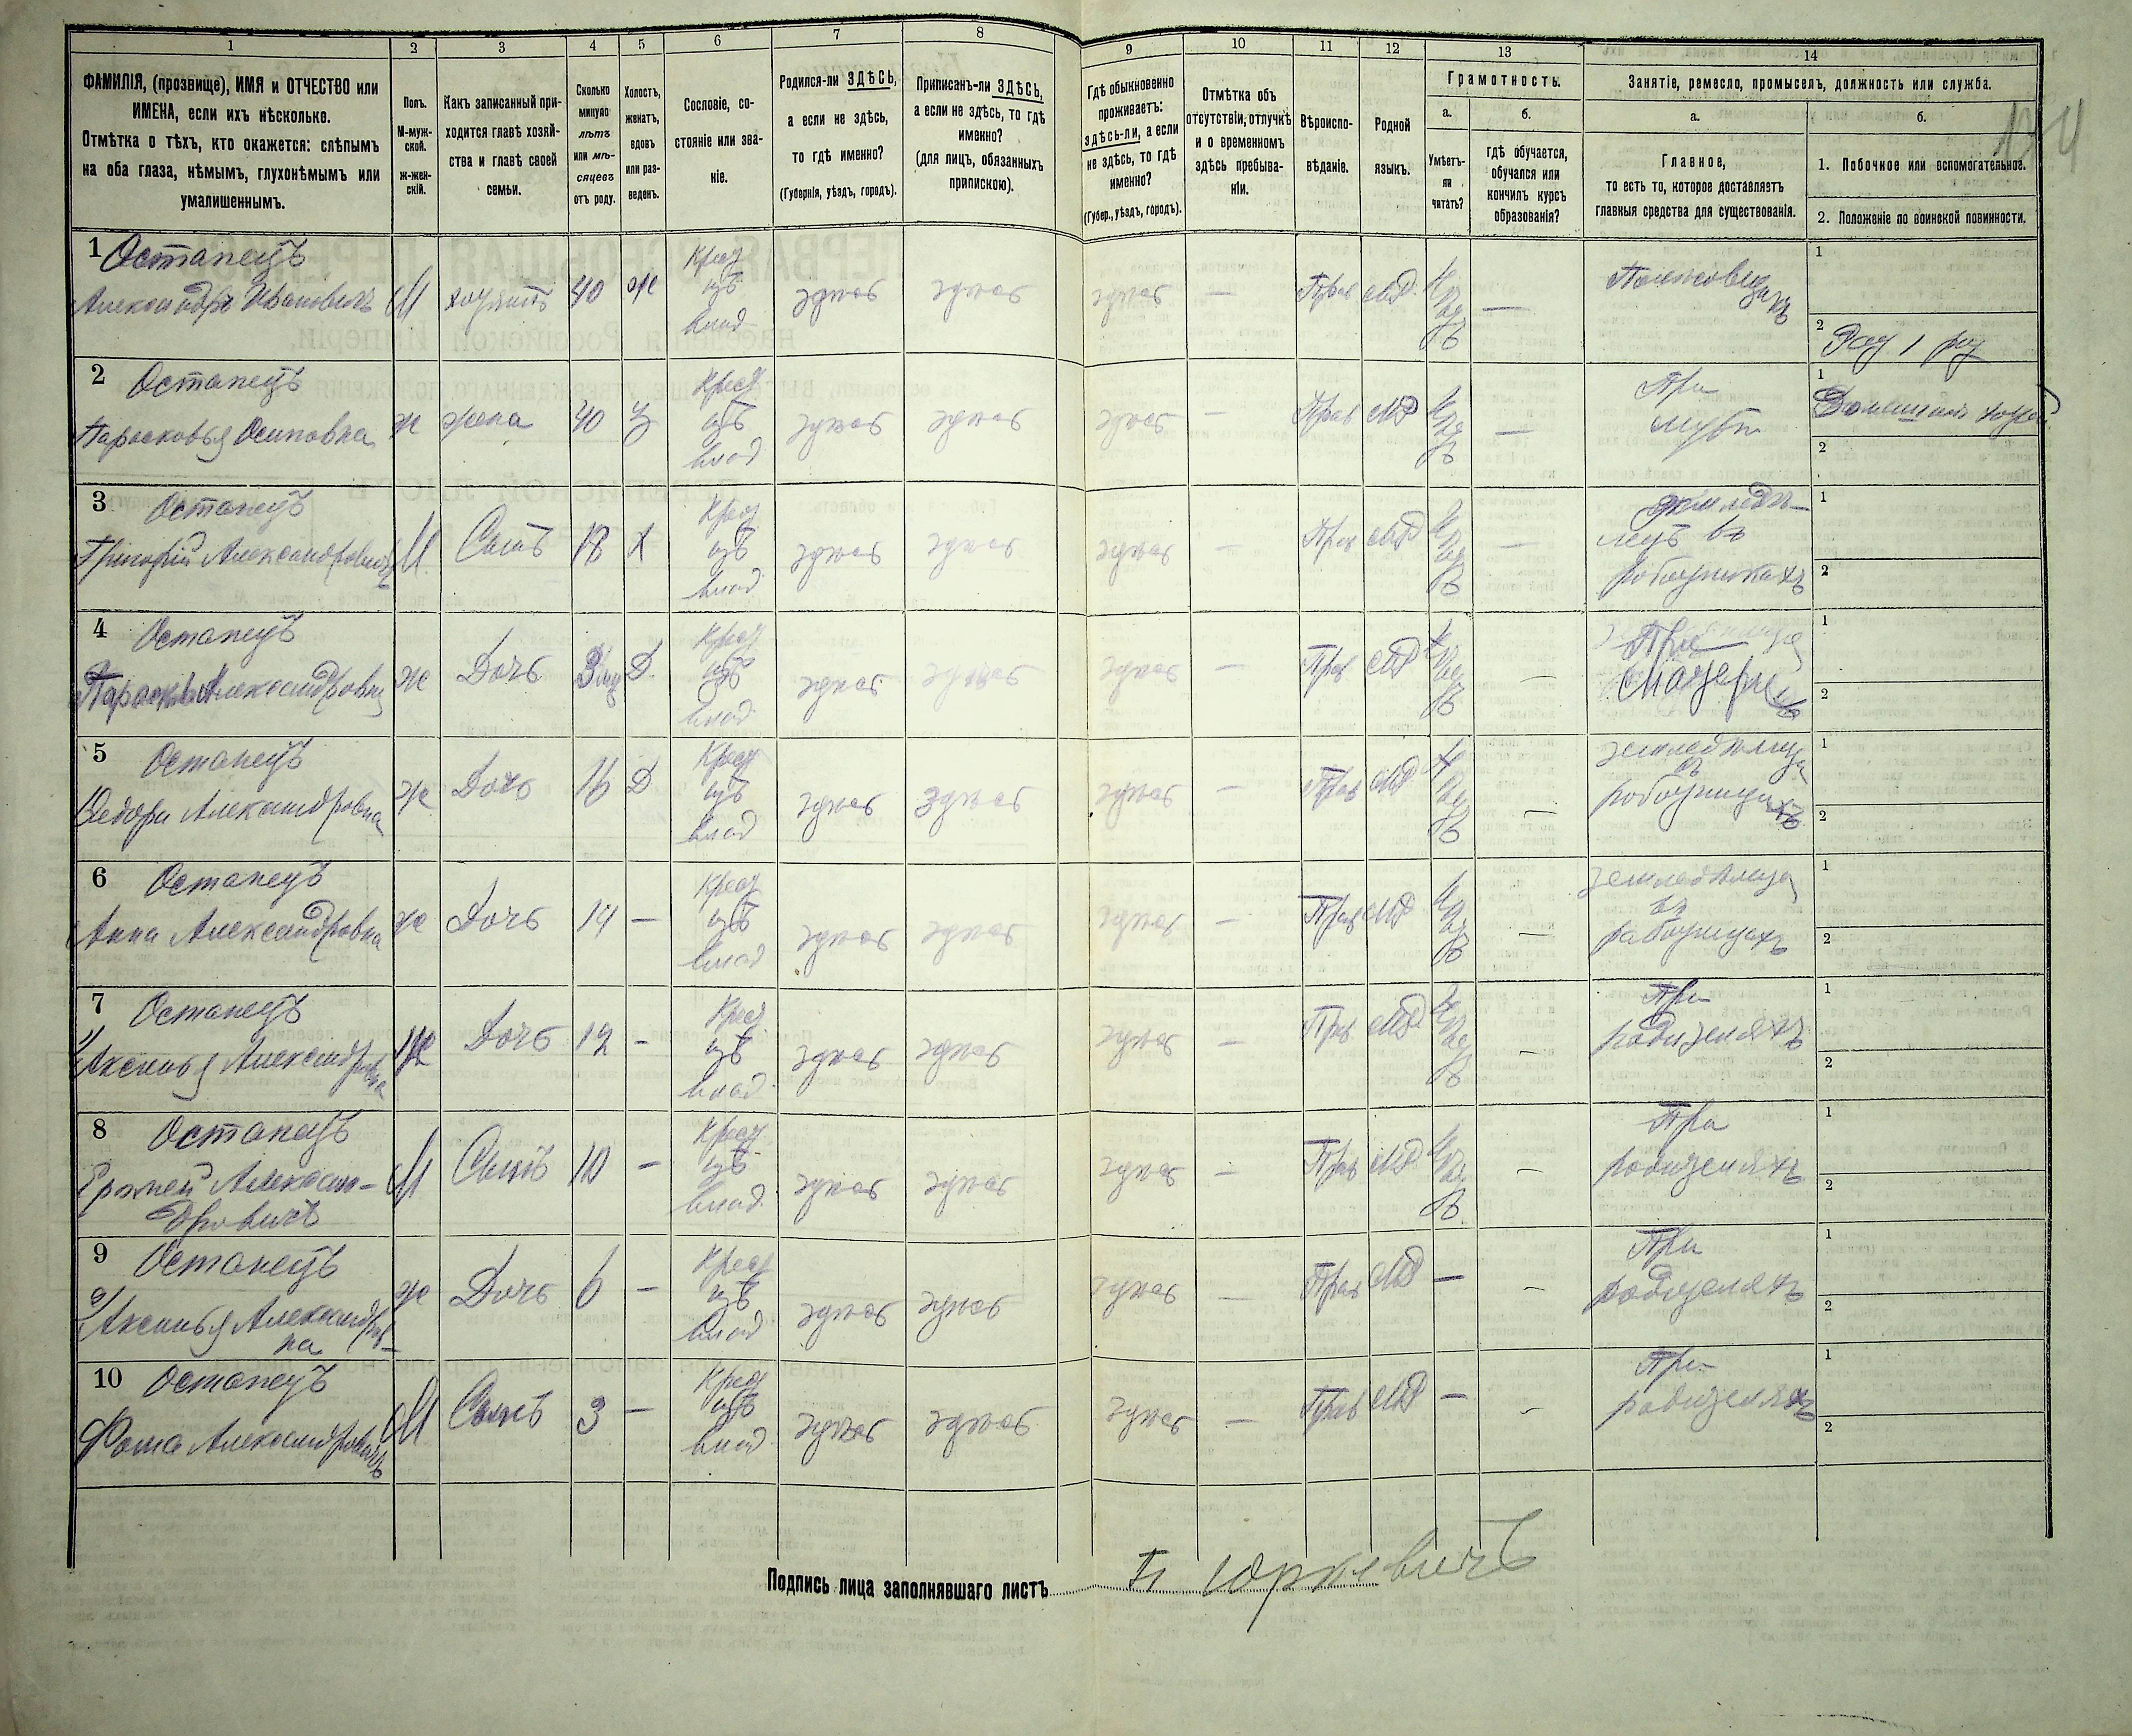 1 2 3 4 5 6 7 8 9 10 11 12 13 14
ФАМИЛІЯ, (прозвище), ИМЯ и ОТЧЕСТВО или
ИМЕНА, если ихъ нѣсколько.
Отмѣтка о тѣхъ, кто окажется: слѣпымъ
на оба глаза, нѣмымъ, глухонѣмымъ или
умалишеннымъ.
Полъ.
М-муж-
ской.
ж-жен-
скій.
Какъ записанный при-
ходится главѣ хозяй-
ства и главѣ своей
семьи.
Сколько
минуло
лѣтъ
или мѣ-
сяцевъ
отъ роду.
Холостъ,
женатъ,
вдовъ
или раз-
веденъ.
Сословіе, со-
стояніе или зва-
ніе.
Родился-ли ЗДѢСЬ,
а если не здѣсь,
то гдѣ именно?
(Губернія, уѣздъ, городъ).
Приписанъ-ли ЗДѢСЬ,
а если не здѣсь, то гдѣ
именно?
(для лицъ, обязанныхъ
припискою).
Гдѣ обыкновенно
проживаетъ:
здѣсь-ли, а если
не здѣсь, то гдѣ
именно?
(Губер., уѣздъ, городъ).
Отмѣтка объ
отсутствіи, отлучкѣ
и о временномъ
здѣсь пребыва-
ніи.
Вѣроиспо-
вѣданіе.
Родной
языкъ.
Грамотность.
а.
Умѣетъ-
ли
читать?
б.
гдѣ обучается,
обучался или
кончилъ курсъ
образованія?
Занятіе, ремесло, промыселъ, должность или служба.
а.
Главное,
то есть то, которое доставляетъ
главныя средства для существованія.
б.
1. Побочное или вспомогательное.
2. Положеніе по воинской повинности.
1 Остапецъ
Александръ Ивановичъ М хозяинъ 40 ж Крест изъ влад здѣсь здѣсь здѣсь — Прав —
1
2
2 Остапецъ
Парасковья Осиповна ж жена 40 З Крест изъ влад здѣсь здѣсь здѣсь — Прав — При мужи
1
2
3 Остапецъ
Григорій Александровичъ М Сынъ 18 Х Крест изъ влад здѣсь здѣсь здѣсь — Прав — въ работникахъ
1
2
4 Остапецъ
Александровна ж Дочь Д. Крест изъ влад здѣсь здѣсь здѣсь — Прав — При
1
2
5 Остапецъ
Александровна ж Дочь 16 Д Крест изъ влад здѣсь здѣсь здѣсь — Прав — въ работницахъ
1
2
6 Остапецъ
Анна Александровна ж Дочь 14 — Крест изъ влад здѣсь здѣсь здѣсь — Прав — въ работницахъ
1
2
7 Остапецъ
Аксинья Александровна ж Дочь 12 — Крест изъ влад здѣсь здѣсь здѣсь — Прав — При родителяхъ
1
2
8 Остапецъ
Александ-
ровичъ М Сынъ 10 — Крест изъ влад здѣсь здѣсь здѣсь — Прав — При родителяхъ
1
2
9 Остапецъ
Аксинья Александров-
на ж Дочь 6 — Крест изъ влад здѣсь здѣсь здѣсь — Прав — — При родителяхъ
1
2
10 Остапецъ
Фома Александровичъ М Сынъ 3 — Крест изъ влад здѣсь здѣсь здѣсь — Прав — — При родителяхъ
1
2
Подпись лица заполнявшаго листъ П Юркевичъ